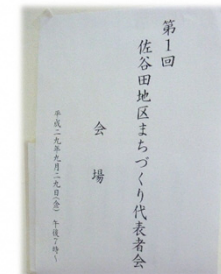 第1回
佐谷田地区まちづくり代表者会
会場
平成二九年九月二九日(金) 午後7時~